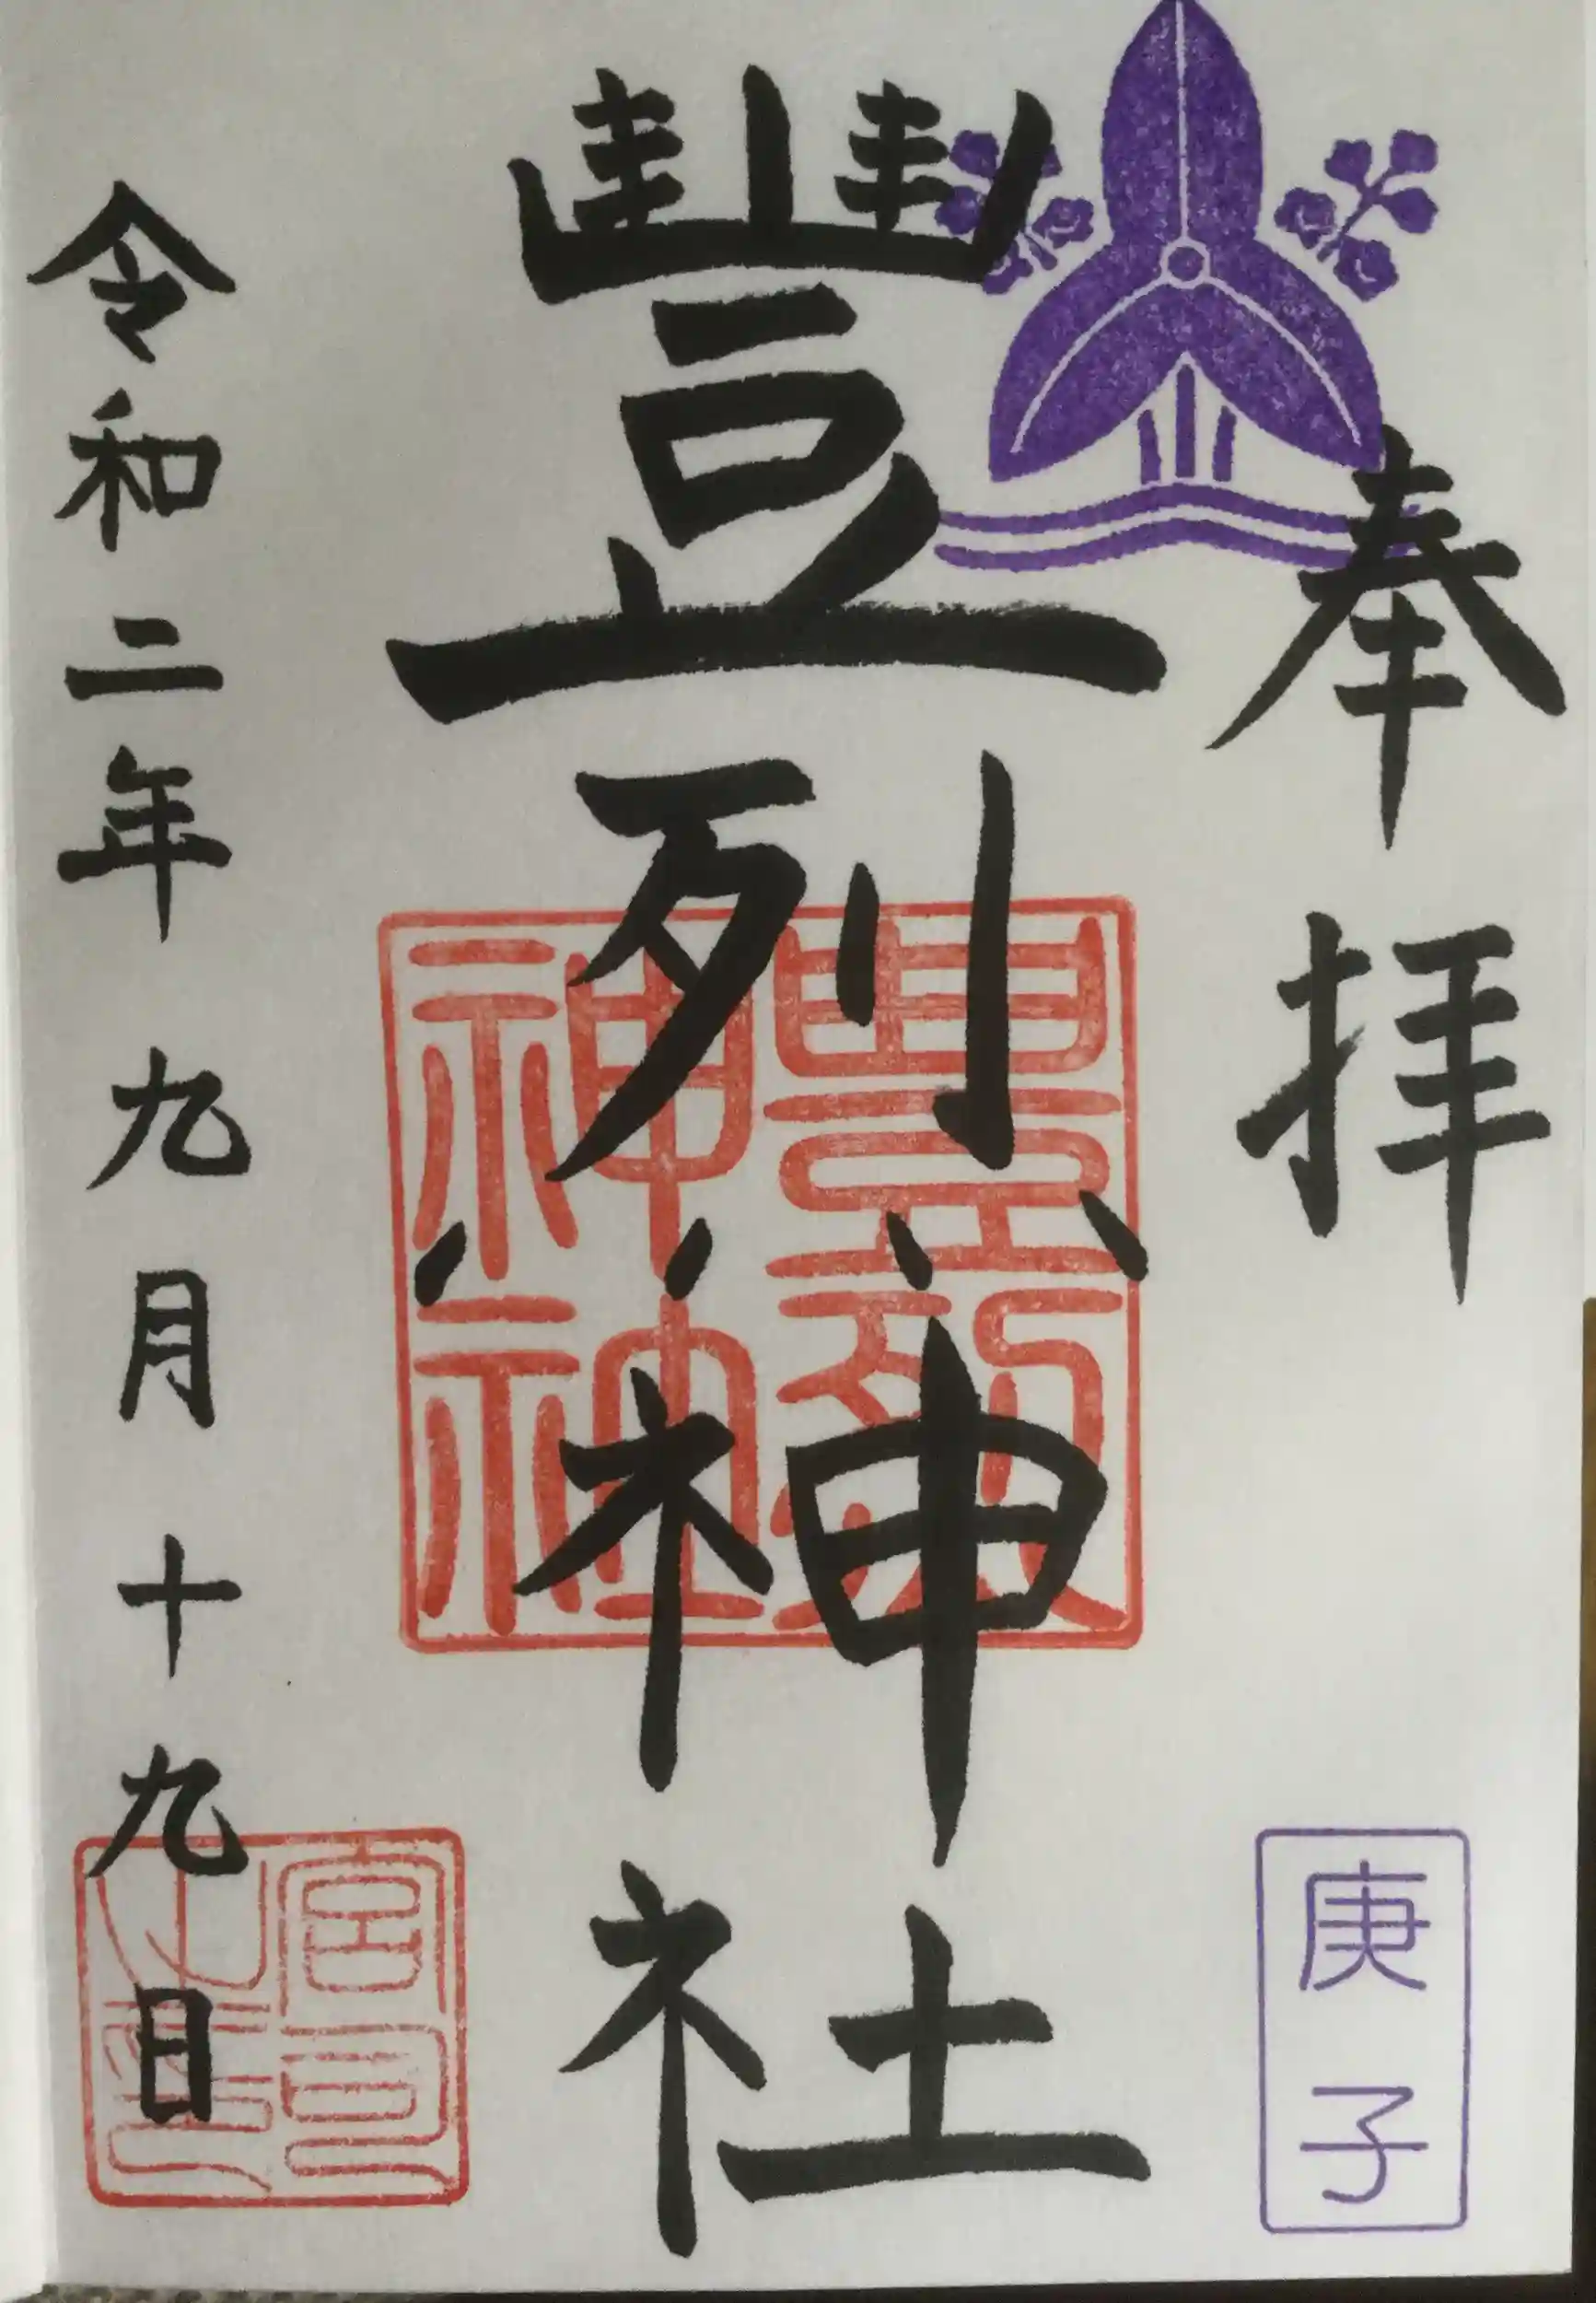 奉拝
庚子
豐烈神社
豐烈神社
令和二年九月十九日
宮司之印